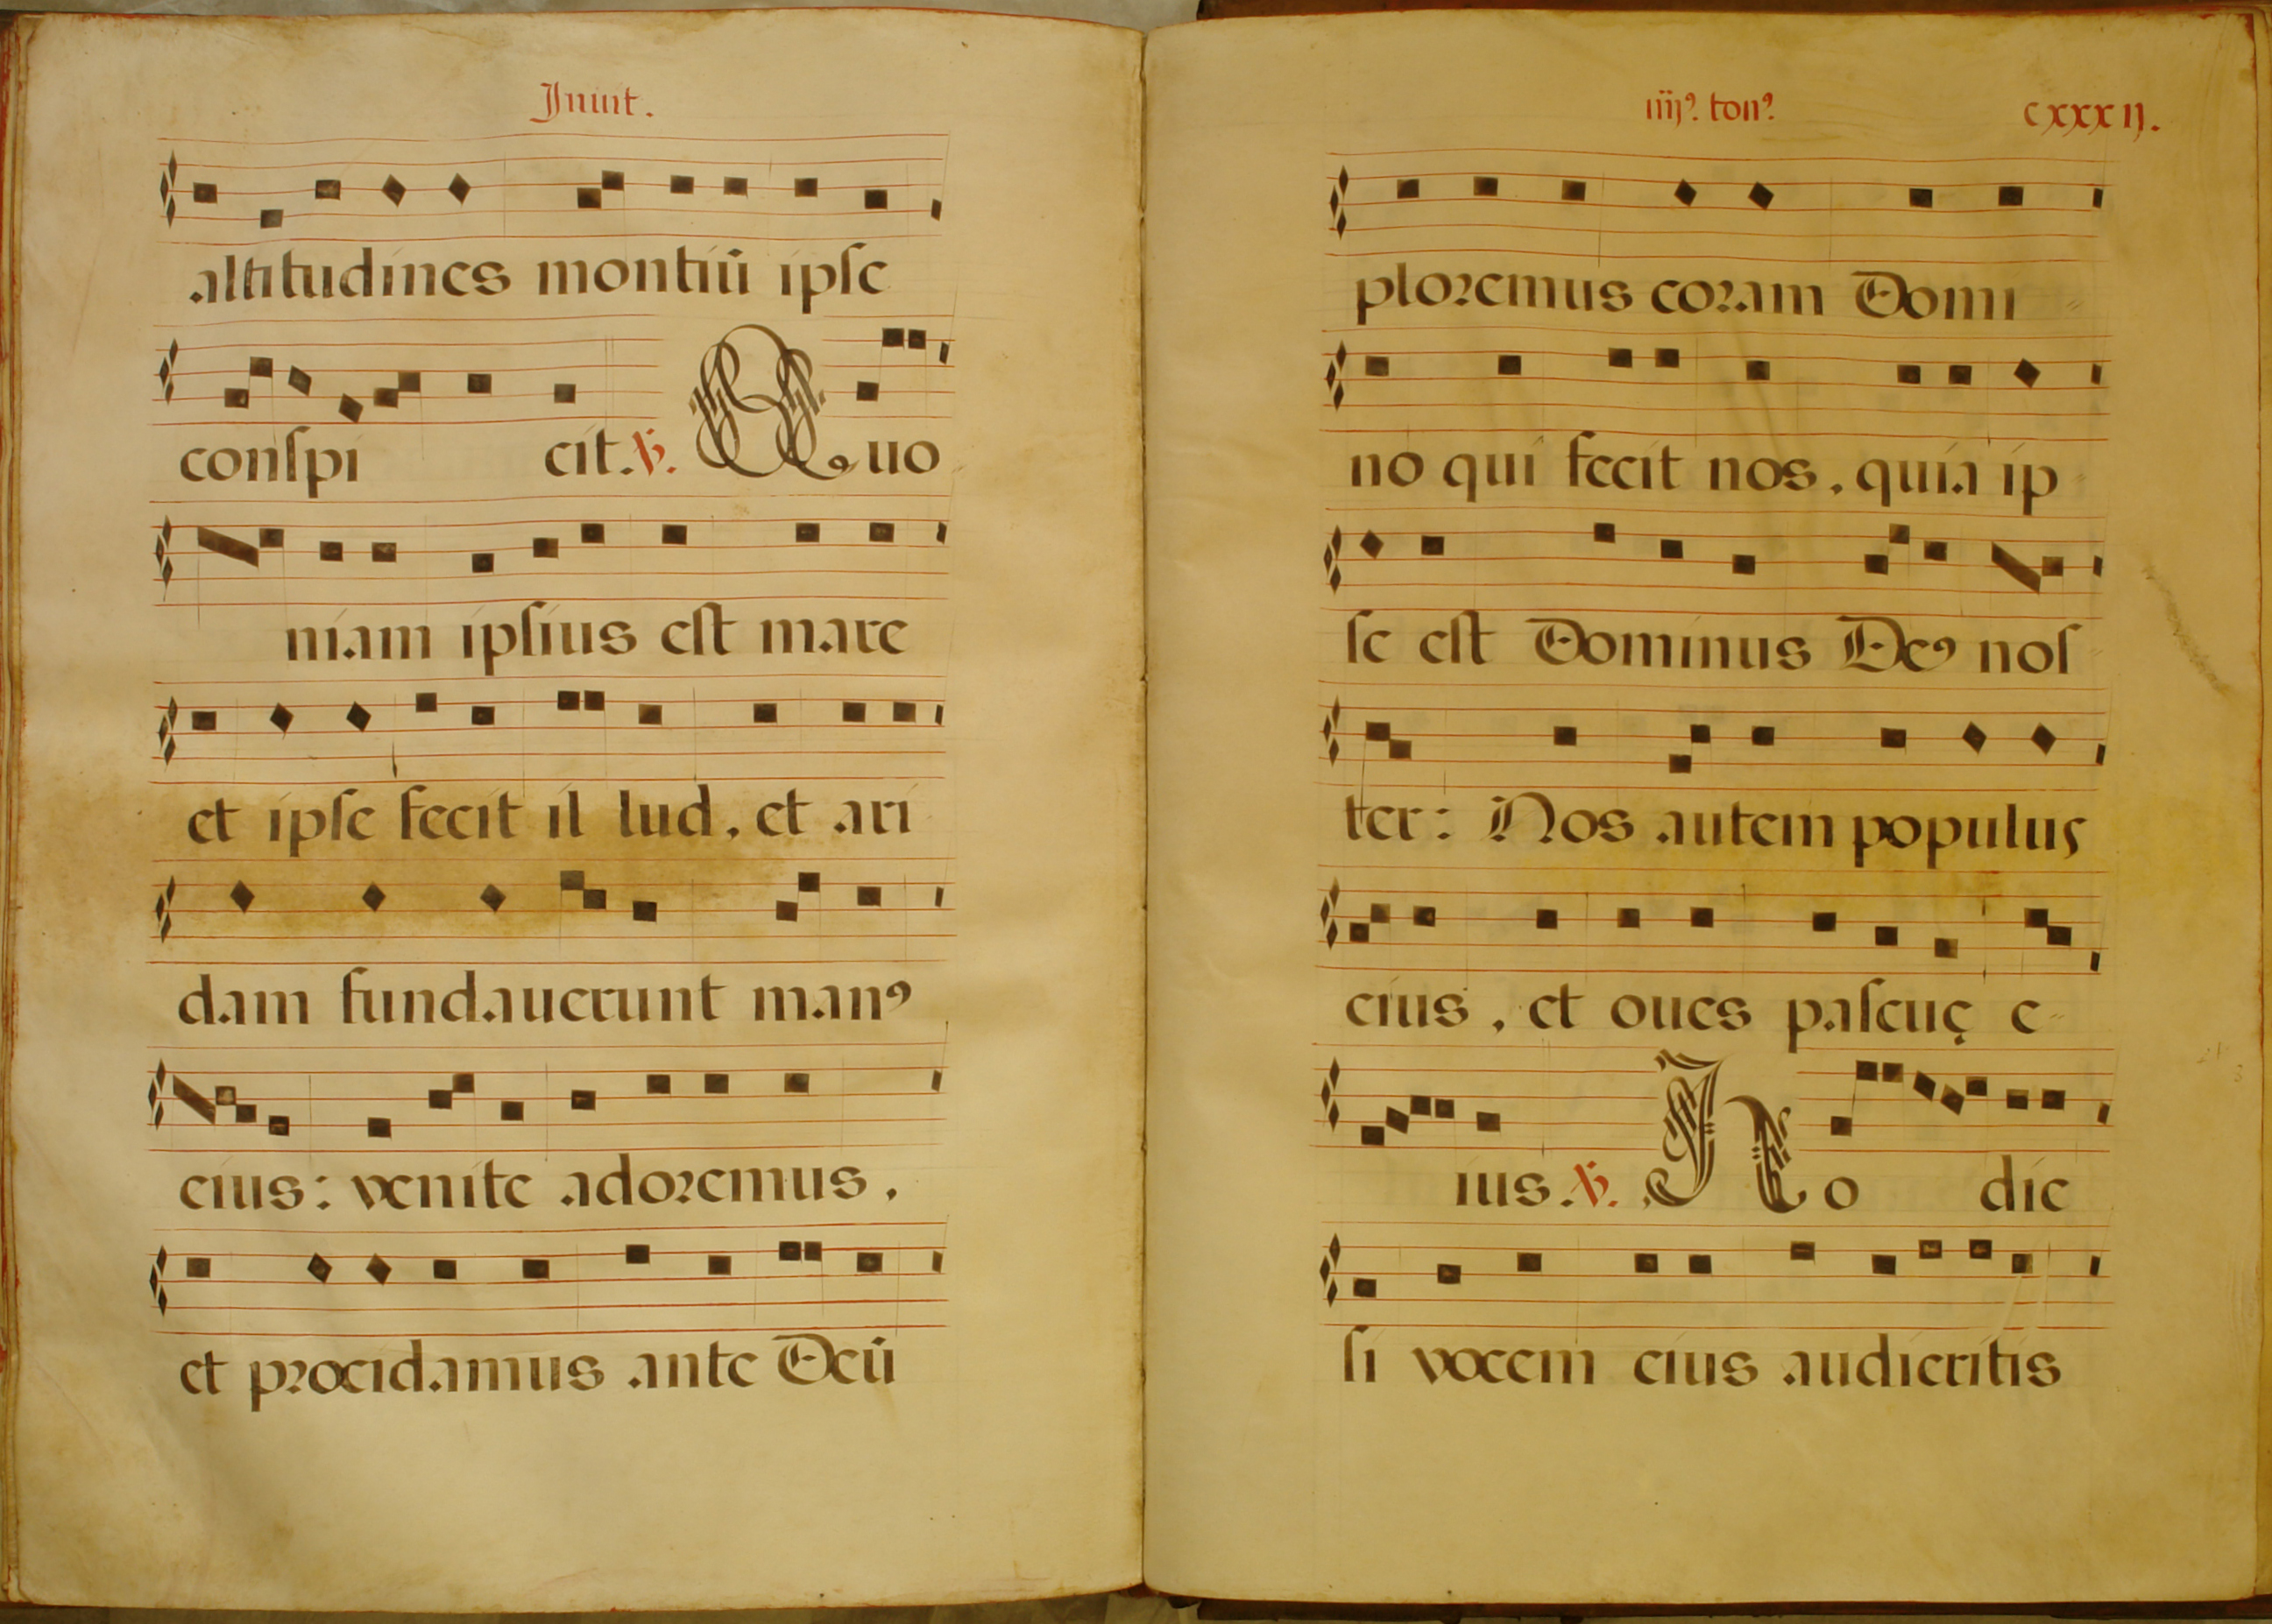 Inuit.
altitudines montiū ipse
conspi cit. ℣. Quo
niam ipsius est mare
et ipse fecit il lud, et ari
dam fundauerunt manꝰ
eius: venite adoremus,
et procidamus ante Deū
iiijꝰ. tonꝰ.
cxxxij.
ploremus coram Domi
no qui fecit nos, quia ip
se est Dominus Deꝰ nos
ter: Nos autem populus
eius, et oues pascuę e-
ius. ℣. Ho die
si vocem eius audieritis